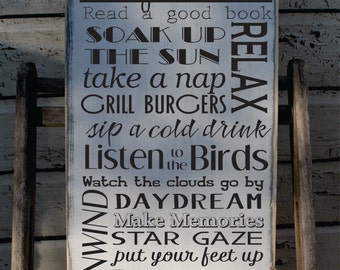 Read a good book
SOAK UP
THE SUN
RELAX
take a nap
GRILL BURGERS
sip a cold drink
Listen to the Birds
Watch the clouds go by
DAYDREAM
Make Memories
STAR GAZE
put your feet up